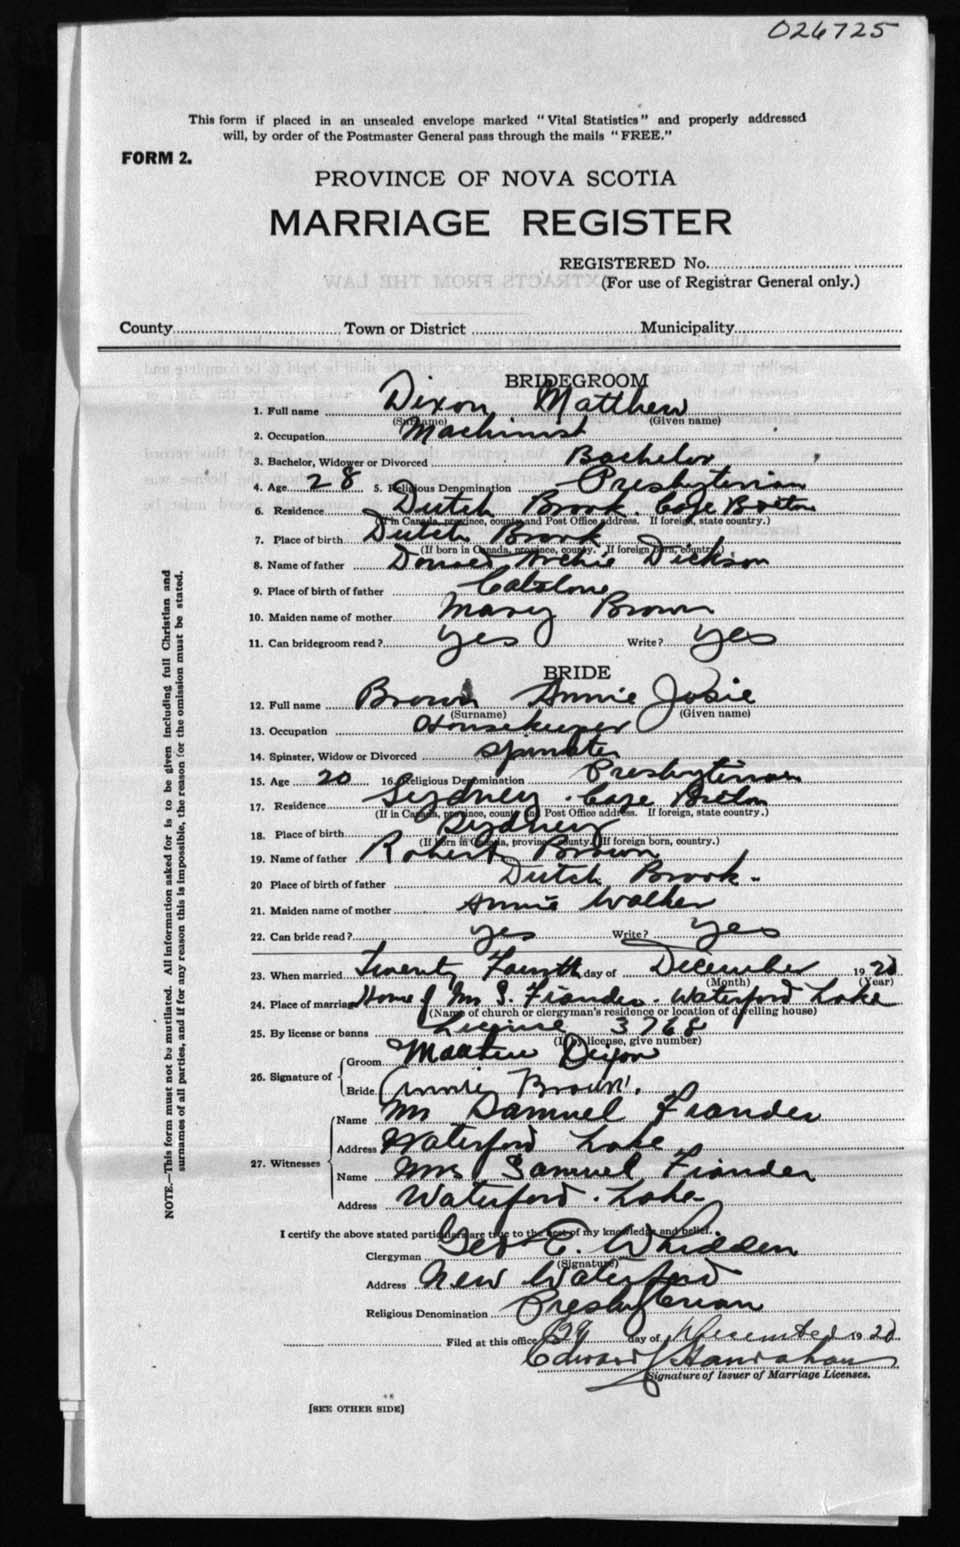 026725
This form if placed in an unsealed envelope marked "Vital Statistics" and properly addressed
will, by order of the Postmaster General pass through the mails "FREE."
FORM 2.
PROVINCE OF NOVA SCOTIA
MARRIAGE REGISTER
REGISTERED No.
(For use of Registrar General only.)
EXTRACTS FROM THE LAW
County Town or District Municipality
BRIDEGROOM
1. Full name Dixon Matthew
(Surname) (Given name)
2. Occupation Machinist
3. Bachelor, Widower or Divorced Bachelor
4. Age 28 5. Religious Denomination Presbyterian
6. Residence Dutch Brook Cape Breton
(If in Canada, province, county and Post Office address. If foreign, state country.)
7. Place of birth Dutch Brook
(If born in Canada, province, county. If foreign born, country.)
8. Name of father Archie Dickson
9. Place of birth of father
10. Maiden name of mother Mary Brown
11. Can bridegroom read? yes Write? yes
BRIDE
12. Full name Brown Annie Josie
(Surname) (Given name)
13. Occupation Housekeeper
14. Spinster, Widow or Divorced Spinster
15. Age 20 16. Religious Denomination Presbyterian
17. Residence Sydney. Cape Breton
(If in Canada, province, county and Post Office address. If foreign, state country.)
18. Place of birth Sydney
(If born in Canada, province, county. If foreign born, country.)
19. Name of father Robert Brown
20 Place of birth of father Dutch Brook.
21. Maiden name of mother Annie Walker
22. Can bride read? yes Write? yes
23. When married Twenty Fourth day of December 1920
(Month) (Year)
24. Place of marriage Home of Mr S. Fiander. Waterford Lake
(Name of church or clergyman's residence or location of dwelling house)
25. By license or banns License 3768
(If by license, give number)
26. Signature of Groom Matthew Dixon
Bride Annie Brown.
27. Witnesses Name Mr Samuel Fiander
Address Waterford Lake
Name Mrs Samuel Fiander
Address Waterford. Lake
I certify the above stated particulars are true to the best of my knowledge and belief.
Clergyman Geo E. Whidden
(Signature)
Address New Waterford
Religious Denomination Presbyterian
Filed at this office 29 day of December 1920
Edward J Hanrahan
Signature of Issuer of Marriage Licenses.
[SEE OTHER SIDE]
NOTE.—This form must not be mutilated. All information asked for is to be given including full Christian and
surnames of all parties, and if for any reason this is impossible, the reason for the omission must be stated.